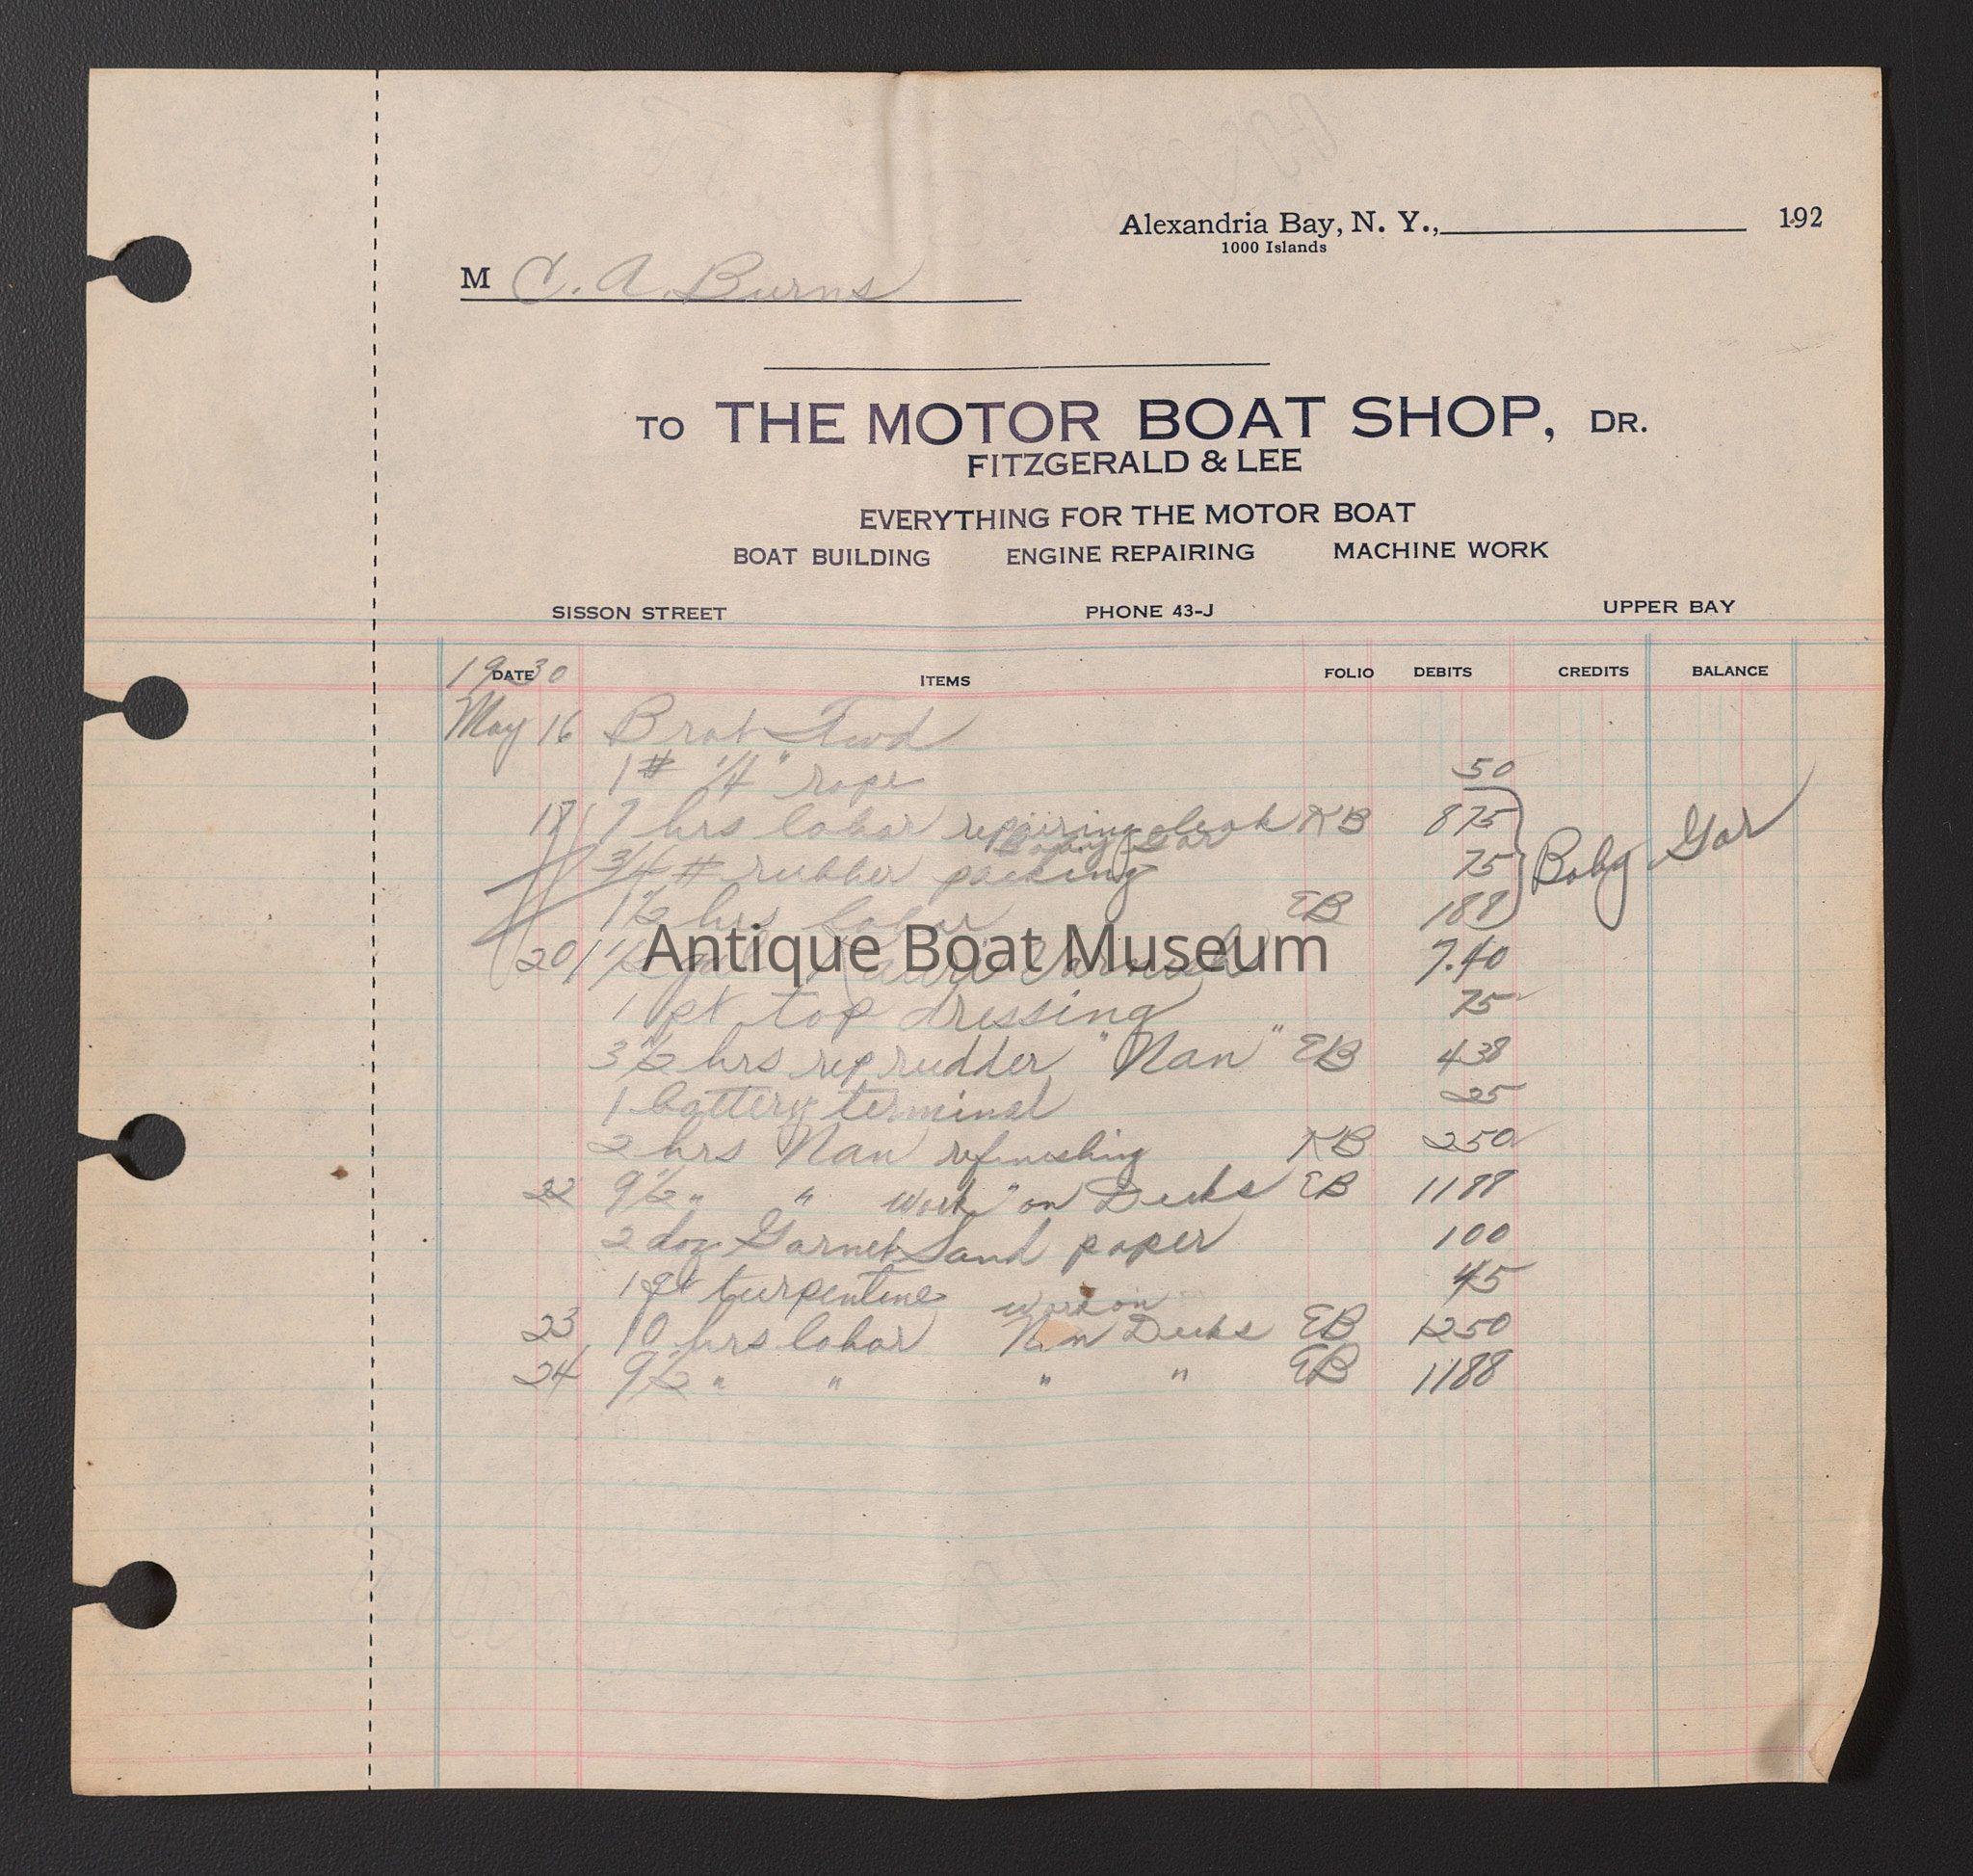 Alexandria Bay, N. Y., 192
1000 Islands
M C. A. Burns
TO THE MOTOR BOAT SHOP, DR.
FITZGERALD & LEE
EVERYTHING FOR THE MOTOR BOAT
BOAT BUILDING ENGINE REPAIRING MACHINE WORK
SISSON STREET PHONE 43-J UPPER BAY
1930
DATE ITEMS FOLIO DEBITS CREDITS BALANCE
May 16 Brot Fwd
1 # 1/4" rope 50
17 hrs labor repairing KB 875
Baby Gar
3/4 # rubber packing 75 Baby Gar
1 1/2 hrs labor EB 188
20 1 1/2 7.40
Antique Boat Museum
1 pt top dressing 75
3 1/2 hrs rep rudder "Nan" EB 438
1 battery terminal 25
2 hrs Nan refinishing KB 250
22 9 1/2 " " work " on Decks EB 1188
2 doz Garnet Sand paper 100
1 qt turpentine 45
work on
23 10 hrs labor Nan Decks EB 1250
24 9 1/2 " " " " EB 1188